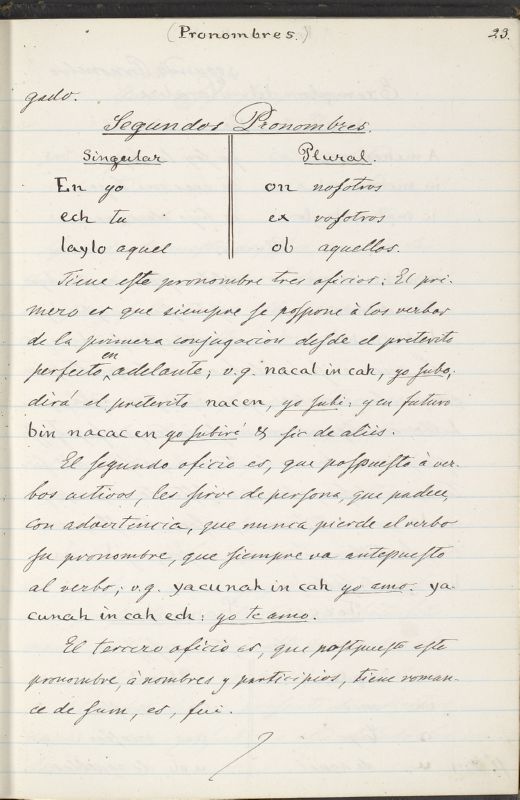 (Pronombres.)
23.
gado.
Segundos Pronombres.
Singular
Plural.
En yo
on nosotros
ech tu
ex vosotros
laylo aquel
ob aquellos.
Tiene este pronombre tres oficios: El pri-
mero es que siempre se pospone à los verbos
de la primera conjugacion desde el preterito
perfecto, en adelante; v.g. nacal in cah, yo subo;
dirá el preterito nacen, yo subi: y en futuro
bin nacac en yo subiré & sic de aliis.
El segundo oficio es, que pospuesto à ver-
bos activos, les sirve de persona, que padece,
con advertincia, que nunca pierde el verbo
su pronombre, que siempre va antepuesto
al verbo; v.g. yacunah in cah yo amo. ya-
cunah in cah ech: yo te amo.
El tercero oficio es, que postpuesto este
pronombre, à nombres y participios, tiene roman-
ce de sum, es, fui.